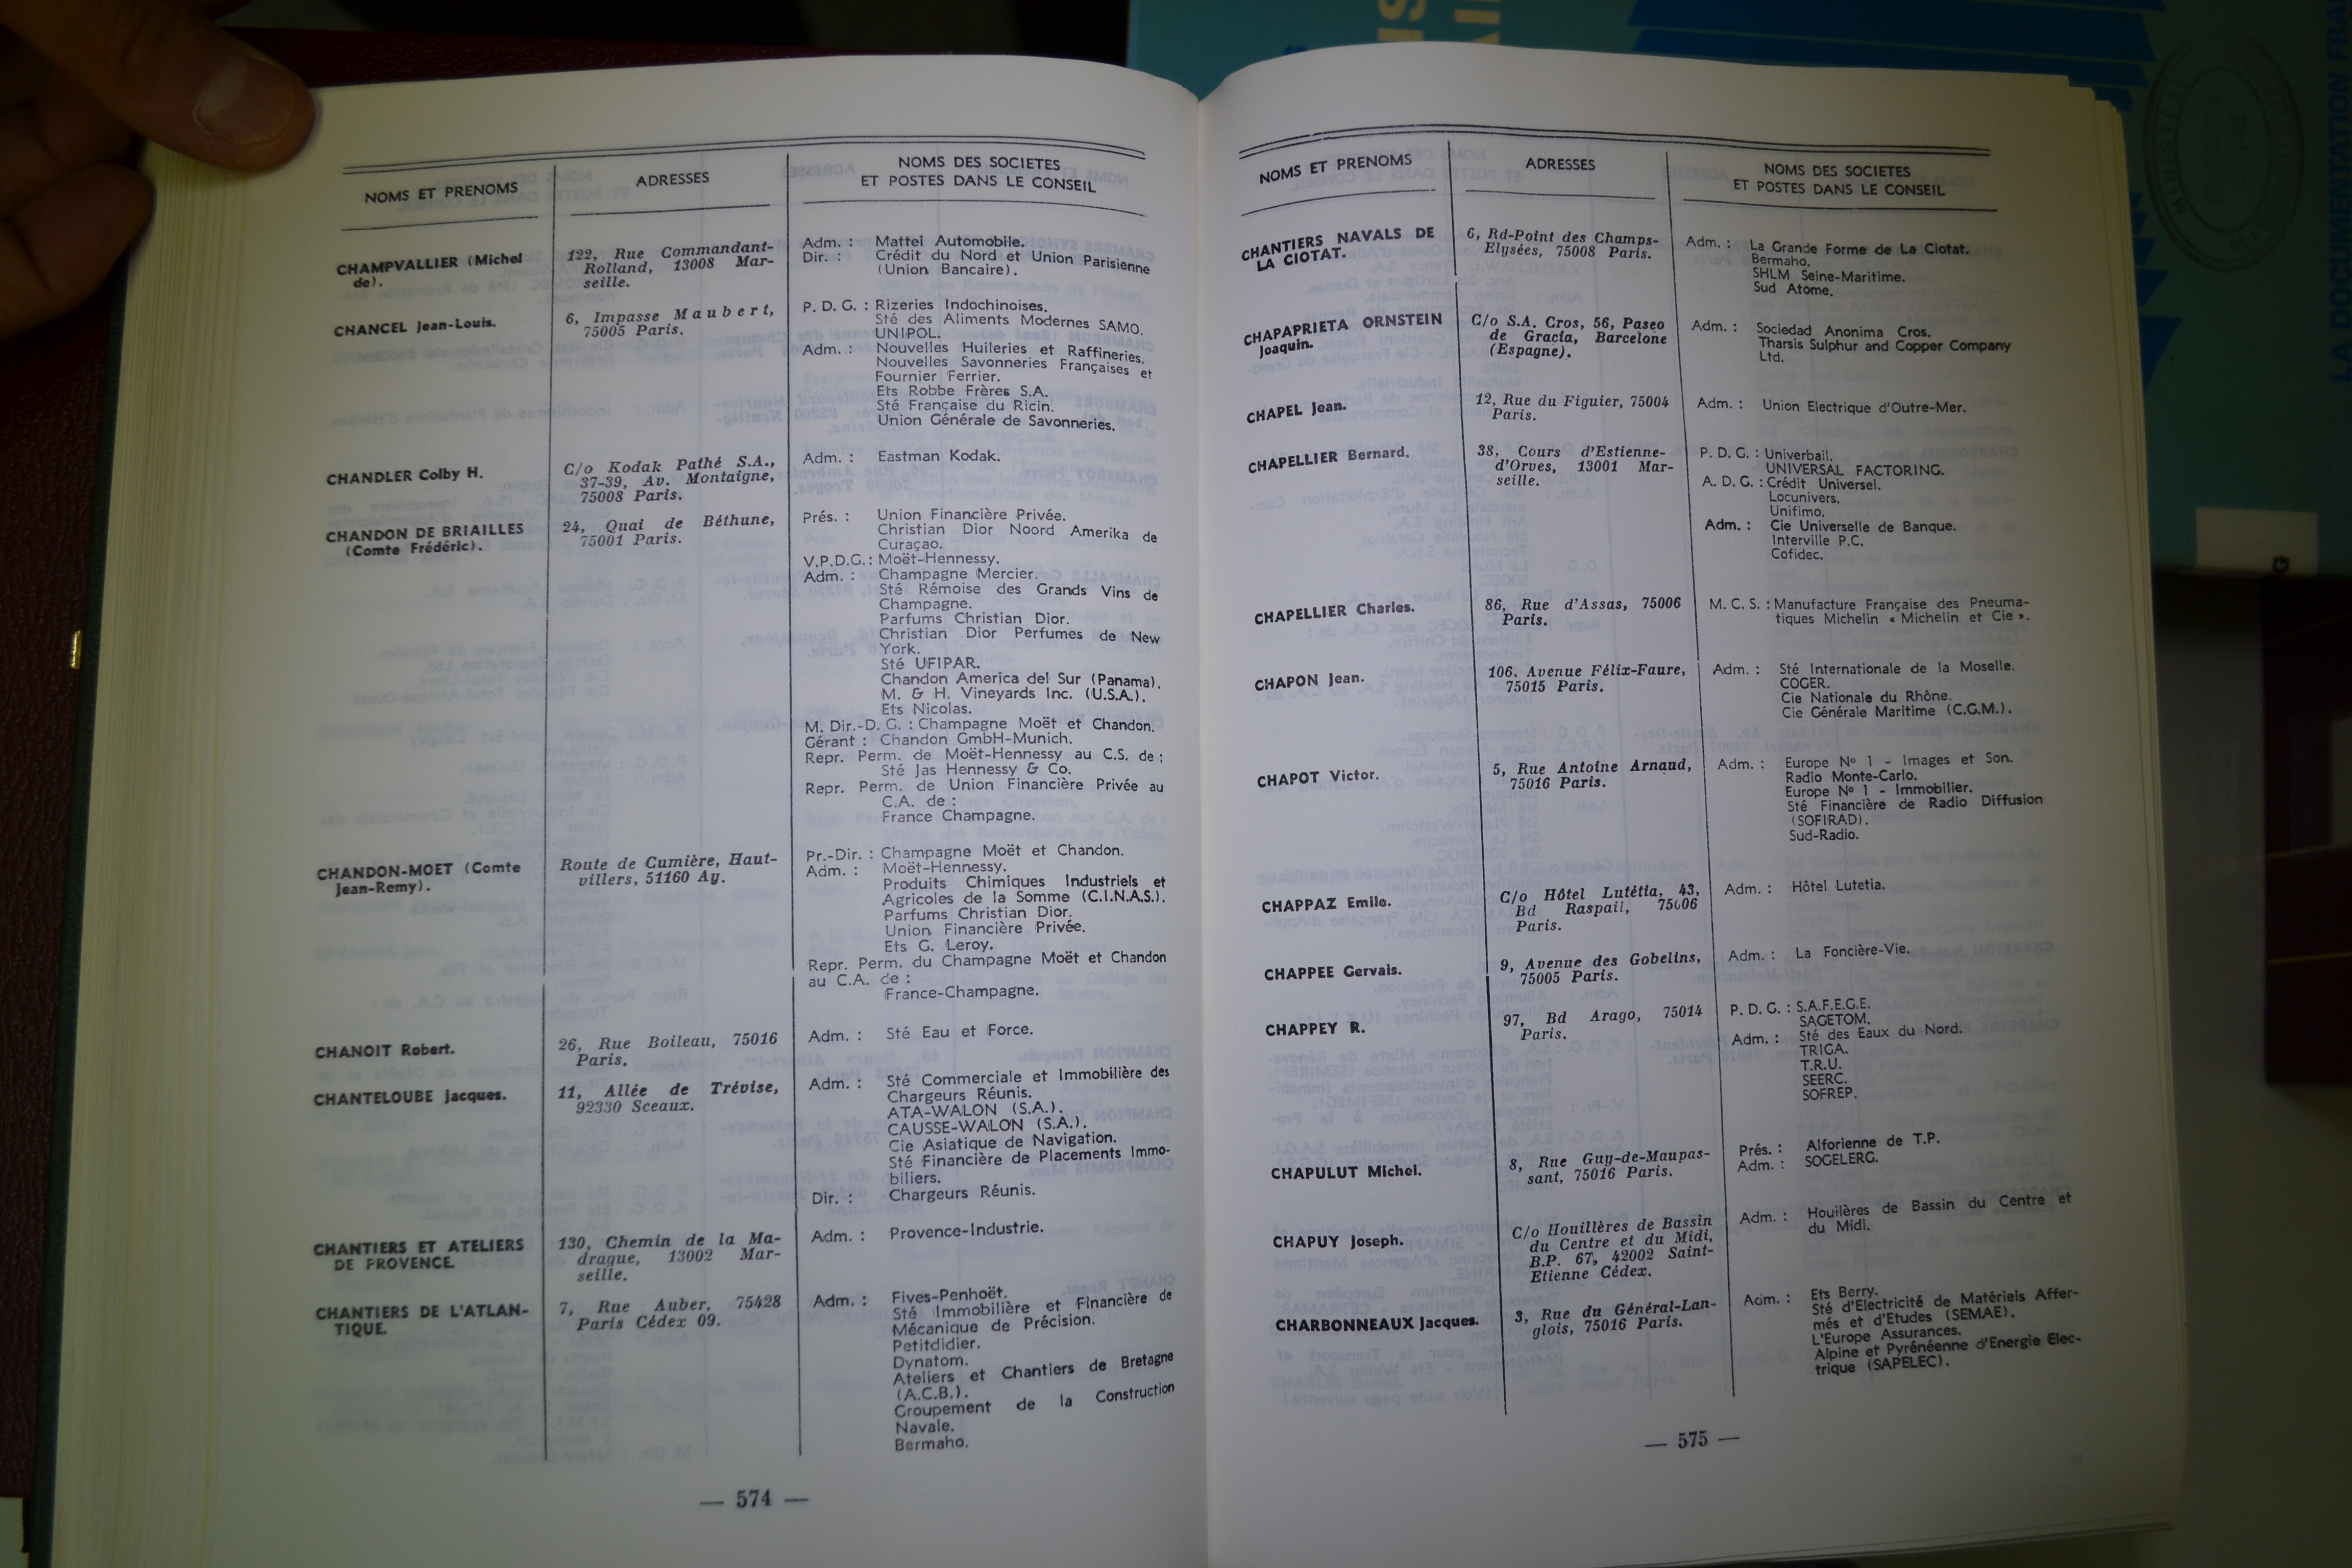 NOMS ET PRENOMS
ADRESSES
NOMS DES SOCIETES
ET POSTES DANS LE CONSEIL
CHAMPVALLIER (Michel
de).
122, Rue Commandant-
Rolland, 13008 Mar-
seille.
Adm. : Mattei Automobile.
Dir. : Crédit du Nord et Union Parisienne
(Union Bancaire).
CHANCEL Jean-Louis.
6, Impasse Maubert,
75005 Paris.
P. D. G. : Rizeries Indochinoises.
Sté des Aliments Modernes SAMO.
UNIPOL.
Adm. : Nouvelles Huileries et Raffineries.
Nouvelles Savonneries Françaises et
Fournier Ferrier.
Ets Robbe Frères S.A.
Sté Française du Ricin.
Union Générale de Savonneries.
CHANDLER Colby H.
C/o Kodak Pathé S.A.,
37-39, Av. Montaigne,
75008 Paris.
Adm. : Eastman Kodak.
CHANDON DE BRIAILLES
(Comte Frédéric).
24, Quai de Béthune,
75001 Paris.
Prés. : Union Financière Privée.
Christian Dior Noord Amerika de
Curaçao.
V.P.D.G. : Moët-Hennessy.
Adm. : Champagne Mercier.
Sté Rémoise des Grands Vins de
Champagne.
Parfums Christian Dior.
Christian Dior Perfumes de New
York.
Sté UFIPAR.
Chandon America del Sur (Panama).
M. & H. Vineyards Inc. (U.S.A.).
Ets Nicolas.
M. Dir.-D. G. : Champagne Moët et Chandon.
Gérant : Chandon GmbH-Munich.
Repr. Perm. de Moët-Hennessy au C.S. de :
Sté Jas Hennessy & Co.
Repr. Perm. de Union Financière Privée au
C.A. de :
France Champagne.
CHANDON-MOET (Comte
Jean-Remy).
Route de Cumière, Haut-
villers, 51160 Ay.
Pr.-Dir. : Champagne Moët et Chandon.
Adm. : Moët-Hennessy.
Produits Chimiques Industriels et
Agricoles de la Somme (C.I.N.A.S.).
Parfums Christian Dior.
Union Financière Privée.
Ets G. Leroy.
Repr. Perm. du Champagne Moët et Chandon
au C.A. de :
France-Champagne.
CHANOIT Robert.
26, Rue Boileau, 75016
Paris.
Adm. : Sté Eau et Force.
CHANTELOUBE Jacques.
11, Allée de Trévise,
92330 Sceaux.
Adm. : Sté Commerciale et Immobilière des
Chargeurs Réunis.
ATA-WALON (S.A.).
CAUSSE-WALON (S.A.).
Cie Asiatique de Navigation.
Sté Financière de Placements Immo-
biliers.
Dir. : Chargeurs Réunis.
CHANTIERS ET ATELIERS
DE PROVENCE.
130, Chemin de la Ma-
drague, 13002 Mar-
seille.
Adm. : Provence-Industrie.
CHANTIERS DE L'ATLAN-
TIQUE.
7, Rue Auber, 75428
Paris Cédex 09.
Adm. : Fives-Penhoët.
Sté Immobilière et Financière de
Mécanique de Précision.
Petitdidier.
Dynatom.
Ateliers et Chantiers de Bretagne
(A.C.B.).
Groupement de la Construction
Navale.
Bermaho.
— 574 —
NOMS ET PRENOMS
ADRESSES
NOMS DES SOCIETES
ET POSTES DANS LE CONSEIL
CHANTIERS NAVALS DE
LA CIOTAT.
6, Rd-Point des Champs-
Elysées, 75008 Paris.
Adm. : La Grande Forme de La Ciotat.
Bermaho.
SHLM Seine-Maritime.
Sud Atome.
CHAPAPRIETA ORNSTEIN
Joaquin.
C/o S.A. Cros, 56, Paseo
de Gracia, Barcelone
(Espagne).
Adm. : Sociedad Anonima Cros.
Tharsis Sulphur and Copper Company
Ltd.
CHAPEL Jean.
12, Rue du Figuier, 75004
Paris.
Adm. : Union Electrique d'Outre-Mer.
CHAPELLIER Bernard.
38, Cours d'Estienne-
d'Orves, 13001 Mar-
seille.
P. D. G. : Univerbail.
UNIVERSAL FACTORING.
A. D. G. : Crédit Universel.
Locunivers.
Unifimo.
Adm. : Cie Universelle de Banque.
Interville P.C.
Cofidec.
CHAPELLIER Charles.
86, Rue d'Assas, 75006
Paris.
M. C. S. : Manufacture Française des Pneuma-
tiques Michelin « Michelin et Cie ».
CHAPON Jean.
106, Avenue Félix-Faure,
75015 Paris.
Adm. : Sté Internationale de la Moselle.
COGER.
Cie Nationale du Rhône.
Cie Générale Maritime (C.G.M.).
CHAPOT Victor.
5, Rue Antoine Arnaud,
75016 Paris.
Adm. : Europe No 1 - Images et Son.
Radio Monte-Carlo.
Europe No 1 - Immobilier.
Sté Financière de Radio Diffusion
(SOFIRAD).
Sud-Radio.
CHAPPAZ Emile.
C/o Hôtel Lutétia, 43,
Bd Raspail, 75006
Paris.
Adm. : Hôtel Lutetia.
CHAPPEE Gervais.
9, Avenue des Gobelins,
75005 Paris.
Adm. : La Foncière-Vie.
CHAPPEY R.
97, Bd Arago, 75014
Paris.
P. D. G. : S.A.F.E.G.E.
SAGETOM.
Adm. : Sté des Eaux du Nord.
TRIGA.
T.R.U.
SEERC.
SOFREP.
CHAPULUT Michel.
8, Rue Guy-de-Maupas-
sant, 75016 Paris.
Prés. : Alforienne de T.P.
Adm. : SOGELERG.
CHAPUY Joseph.
C/o Houillères de Bassin
du Centre et du Midi,
B.P. 67, 42002 Saint-
Etienne Cédex.
Adm. : Houilères de Bassin du Centre et
du Midi.
CHARBONNEAUX Jacques.
3, Rue du Général-Lan-
glois, 75016 Paris.
Adm. : Ets Berry.
Sté d'Electricité de Matériels Affer-
més et d'Etudes (SEMAE).
L'Europe Assurances.
Alpine et Pyrénéenne d'Energie Elec-
trique (SAPELEC).
— 575 —
LA DOCUMENTATION FRA